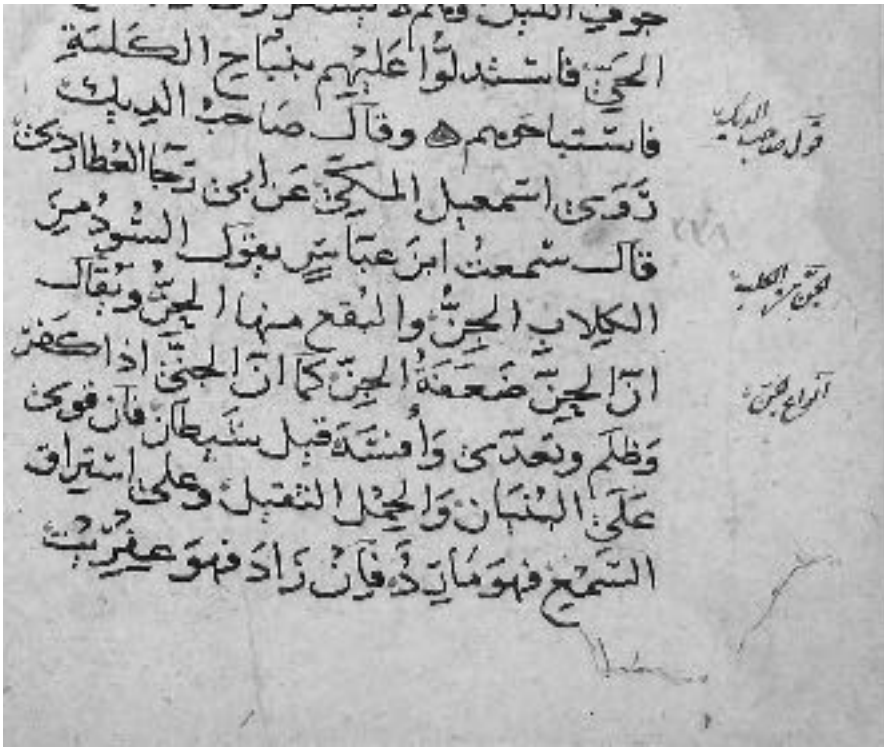 جوف الليل
الحيّ فاستدلّوا عَليْهم بنُبَاح الكَلبَةِ
فاستباحَوهم ه وقالَ صَاحبُ الديك
رَوَى اسمعيل المكيّ عَن ابى رَجَا العُطاردى
قالَ سَمعتُ ابنَ عبّاسٍ يقول السُّودُ مِنَ
الكِلابِ الجِنُّ والبُقع منها الحِنُّ ويُقال
انّ الحِنّ ضَعَفَةُ الجِنّ كَمَا انّ الجنىَّ اذا كَفرَ
وَظلَم وتعدّى وَأفسَدَ قيل شَيطان فَان قوى
عَلَى البُنيَان وَالحِمْل الثقيل وعلى استراق
السَّمْع فهوَ مَارِدٌ فَاِنْ زَادَ فهوَ عِفرِيْت
قول صاحب الديك
٢٢٨
الجنّ من الكلاب
انواع جنّ